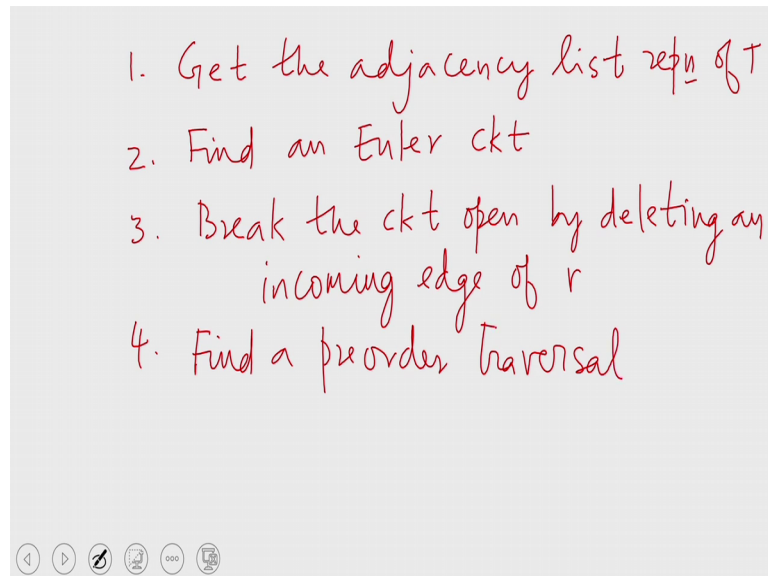 1. Get the adjacency list repn of T
2. Find an Euler ckt
3. Break the ckt open by deleting an
incoming edge of r
4. Find a preorder traversal